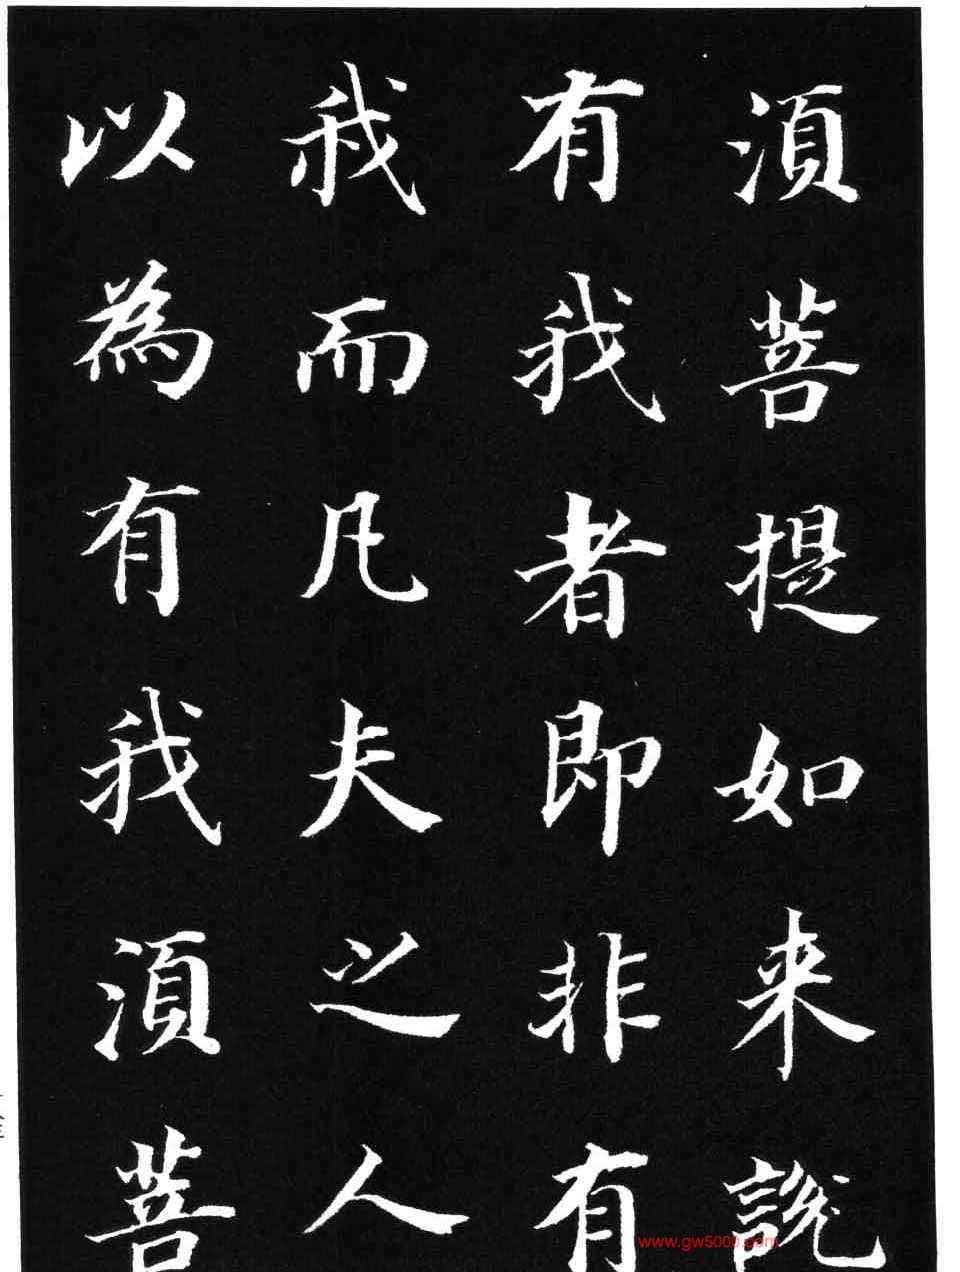 湏菩提如来說
有我者即非有
我而凡夫之人
以為有我湏菩
www.gw5000.com